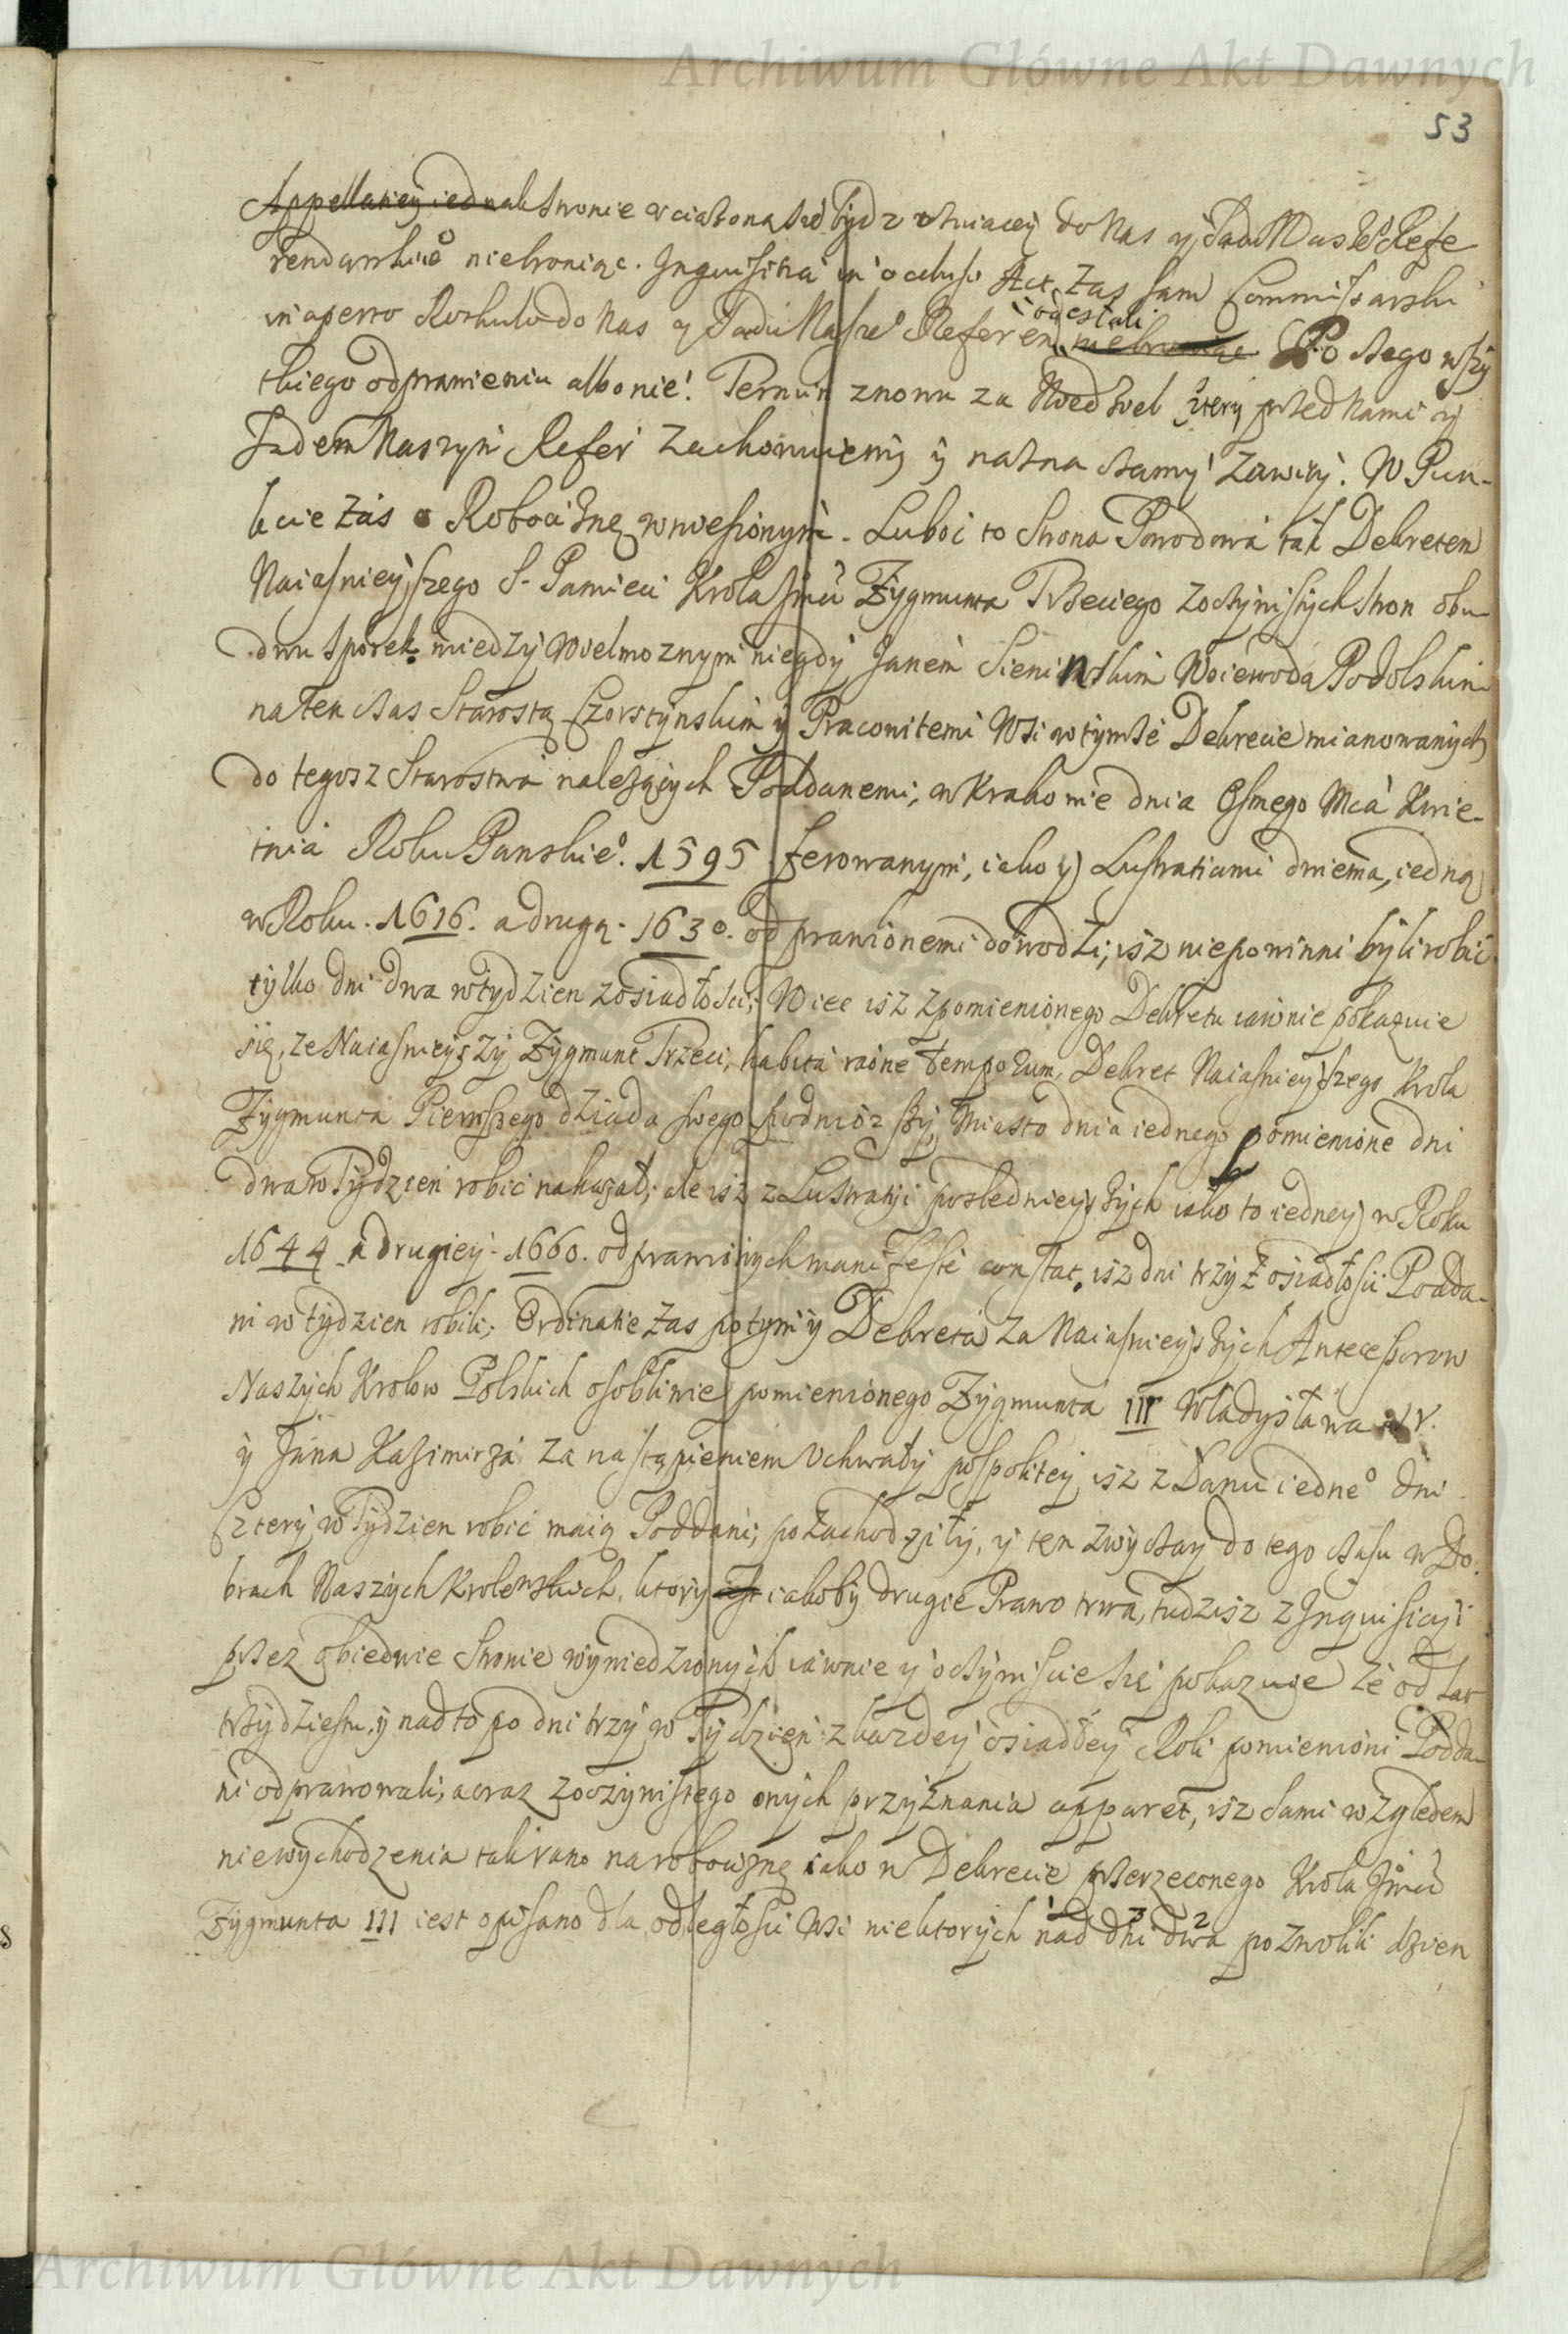 Archiwum Główne Akt Dawnych
53
Appellatiey iednak stronie uciążoną być do Nas y Sądu Nasze Refe
rendarskie nie broniąc. Inquisitia in ocluso Act. zas sam Commissarski
in aperto Rotulo do Nas y Sądu Nasze Referen odestali nie broniąc Po czego wszy
tkiego odprawieniu albo nie! Termin znowu za Niedziel cztery przed Nami y
Sądem Naszym Refer zachowuiemy y naznaczamy zawity. W Pun-
kcie zas o Robociznę wniesionym. Luboć to Strona Powodowa tak Dekretem
Naiasnieyszego S. Pamieci Krola Jmci Zygmunta Trzeciego z oczywistych stron obu-
dwu sporek miedzy Wielmoznym niegdy Janem Sieninskim Woiewodą Podolskim
na ten czas Starostą Czorstynskim y Pracowitemi Wsi w tymże Dekrecie mianowanych
do tegosz Starostwa należących Poddanemi, w Krakowie dnia Osmego Mca Kwie-
tnia Roku Panskie. 1595 ferowanym, iako y Lustratiami dwiema, iedną
w Roku. 1616. a drugą. 1630. odprawionemi dowodzi, isz niepowinni byli robić
tylko dni dwa w tydzien z osiadłosci; Wiec isz z pomienionego Dekretu iawnie pokazuie
się, ze Naiasnieyszy Zygmunt Trzeci, habita raone temporum, Dekret Naiasnieyszego Krola
Zygmunta Pierwszego dziada swego podniosszy, Miasto dnia iednego pomienione dni
dwa w Tydzien robić nakazał; ale isz z Lustratyi posledniejszych iako to iedney w Roku
1644 a drugiey. 1660. odprawionych manifeste constat, isz dni trzy z osiadłosci Podda-
ni w tydzien robili; Ordinatie zas potym y Dekreta za Naiasnieyszych Antecessorow
Naszych Krolow Polskich osobliwie pomienionego Zygmunta III Władysława IV.
y Jana Kazimirza za nastąpieniem Uchwały pospolitey isz z Łanu iedne dni
Cztery w Tydzien robić maią Poddani; pozachodziły, y ten zwyczay do tego czasu w Do-
brach Naszych Krolewskich, ktory iest iakoby drugie Prawo trwa, tudzisz z Inquisicyi
przez obiedwie Stronie wywiedzionych iawnie y oczywiscie się pokazuie że od lat
trzydziestu, y nad to po dni trzy w Tydzien z kazdey osiadłey Roli pomienioni Podda-
ni odprawowali, a oraz z oczywistego onych przyznania apparet, isz sami względem
niewychodzenia tak rano na robociznę iako w Dekrecie przerzeconego Krola Jmci
Zygmunta III iest opisano dla odległosci Wsi niektorych nad dni dwa pozwolili dzien
1 3 2
Archiwum Główne Akt Dawnych